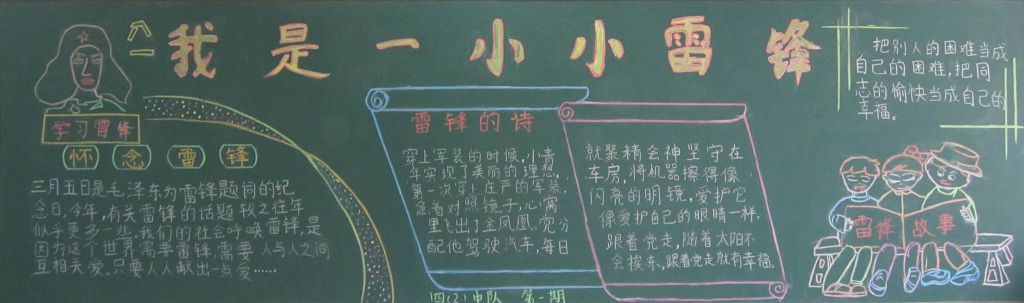 我是一小小雷锋
学习雷锋
怀念雷锋
三月五日是毛泽东为雷锋题词的纪
念日,今年,有关雷锋的话题较之往年
似乎更多一些。我们的社会呼唤雷锋,是
因为这个世界需要雷锋,需要人与人之间
互相关爱。只要人人献出一点爱……
雷锋的诗
穿上军装的时候,小青
年实现了美丽的理想,
第一次穿上庄严的军装,
急着对照镜子,心窝
里飞出了金凤凰。党分
配他驾驶汽车,每日
就聚精会神坚守在
车房,将机器擦得像
闪亮的明镜,爱护它
像爱护自己的眼睛一样.
跟着党走,随着太阳不
会挨冻,跟着党走就有幸福。
把别人的困难当成
自己的困难,把同
志的愉快当成自己的
幸福。
雷锋故事
四(2)中队 第一期